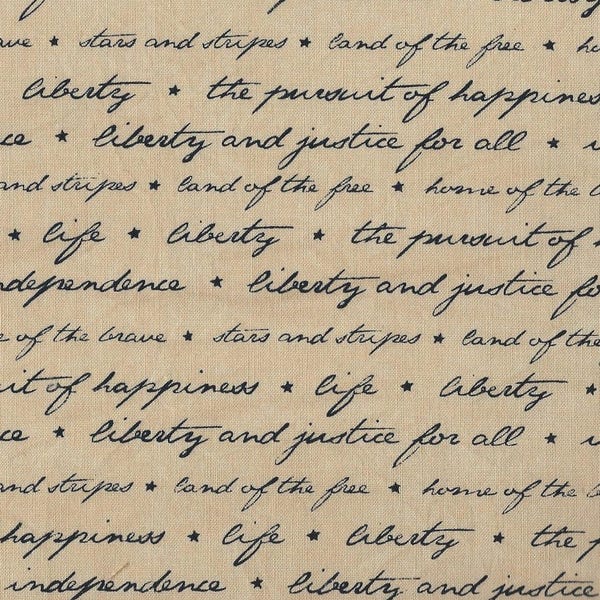 ave ★ stars and stripes ★ land of the free ★ ho
liberty ★ the pursuit of happines
ce ★ liberty and justice for all ★
and stripes ★ land of the free ★ home of the b
★ life ★ liberty ★ the pursuit of h
ndependence ★ liberty and justice fo
e of the brave ★ stars and stripes ★ land of the
uit of happiness ★ life ★ liberty ★
ce ★ liberty and justice for all ★
and stripes ★ land of the free ★ home of the b
happiness ★ life ★ liberty ★ the p
independence ★ liberty and justice